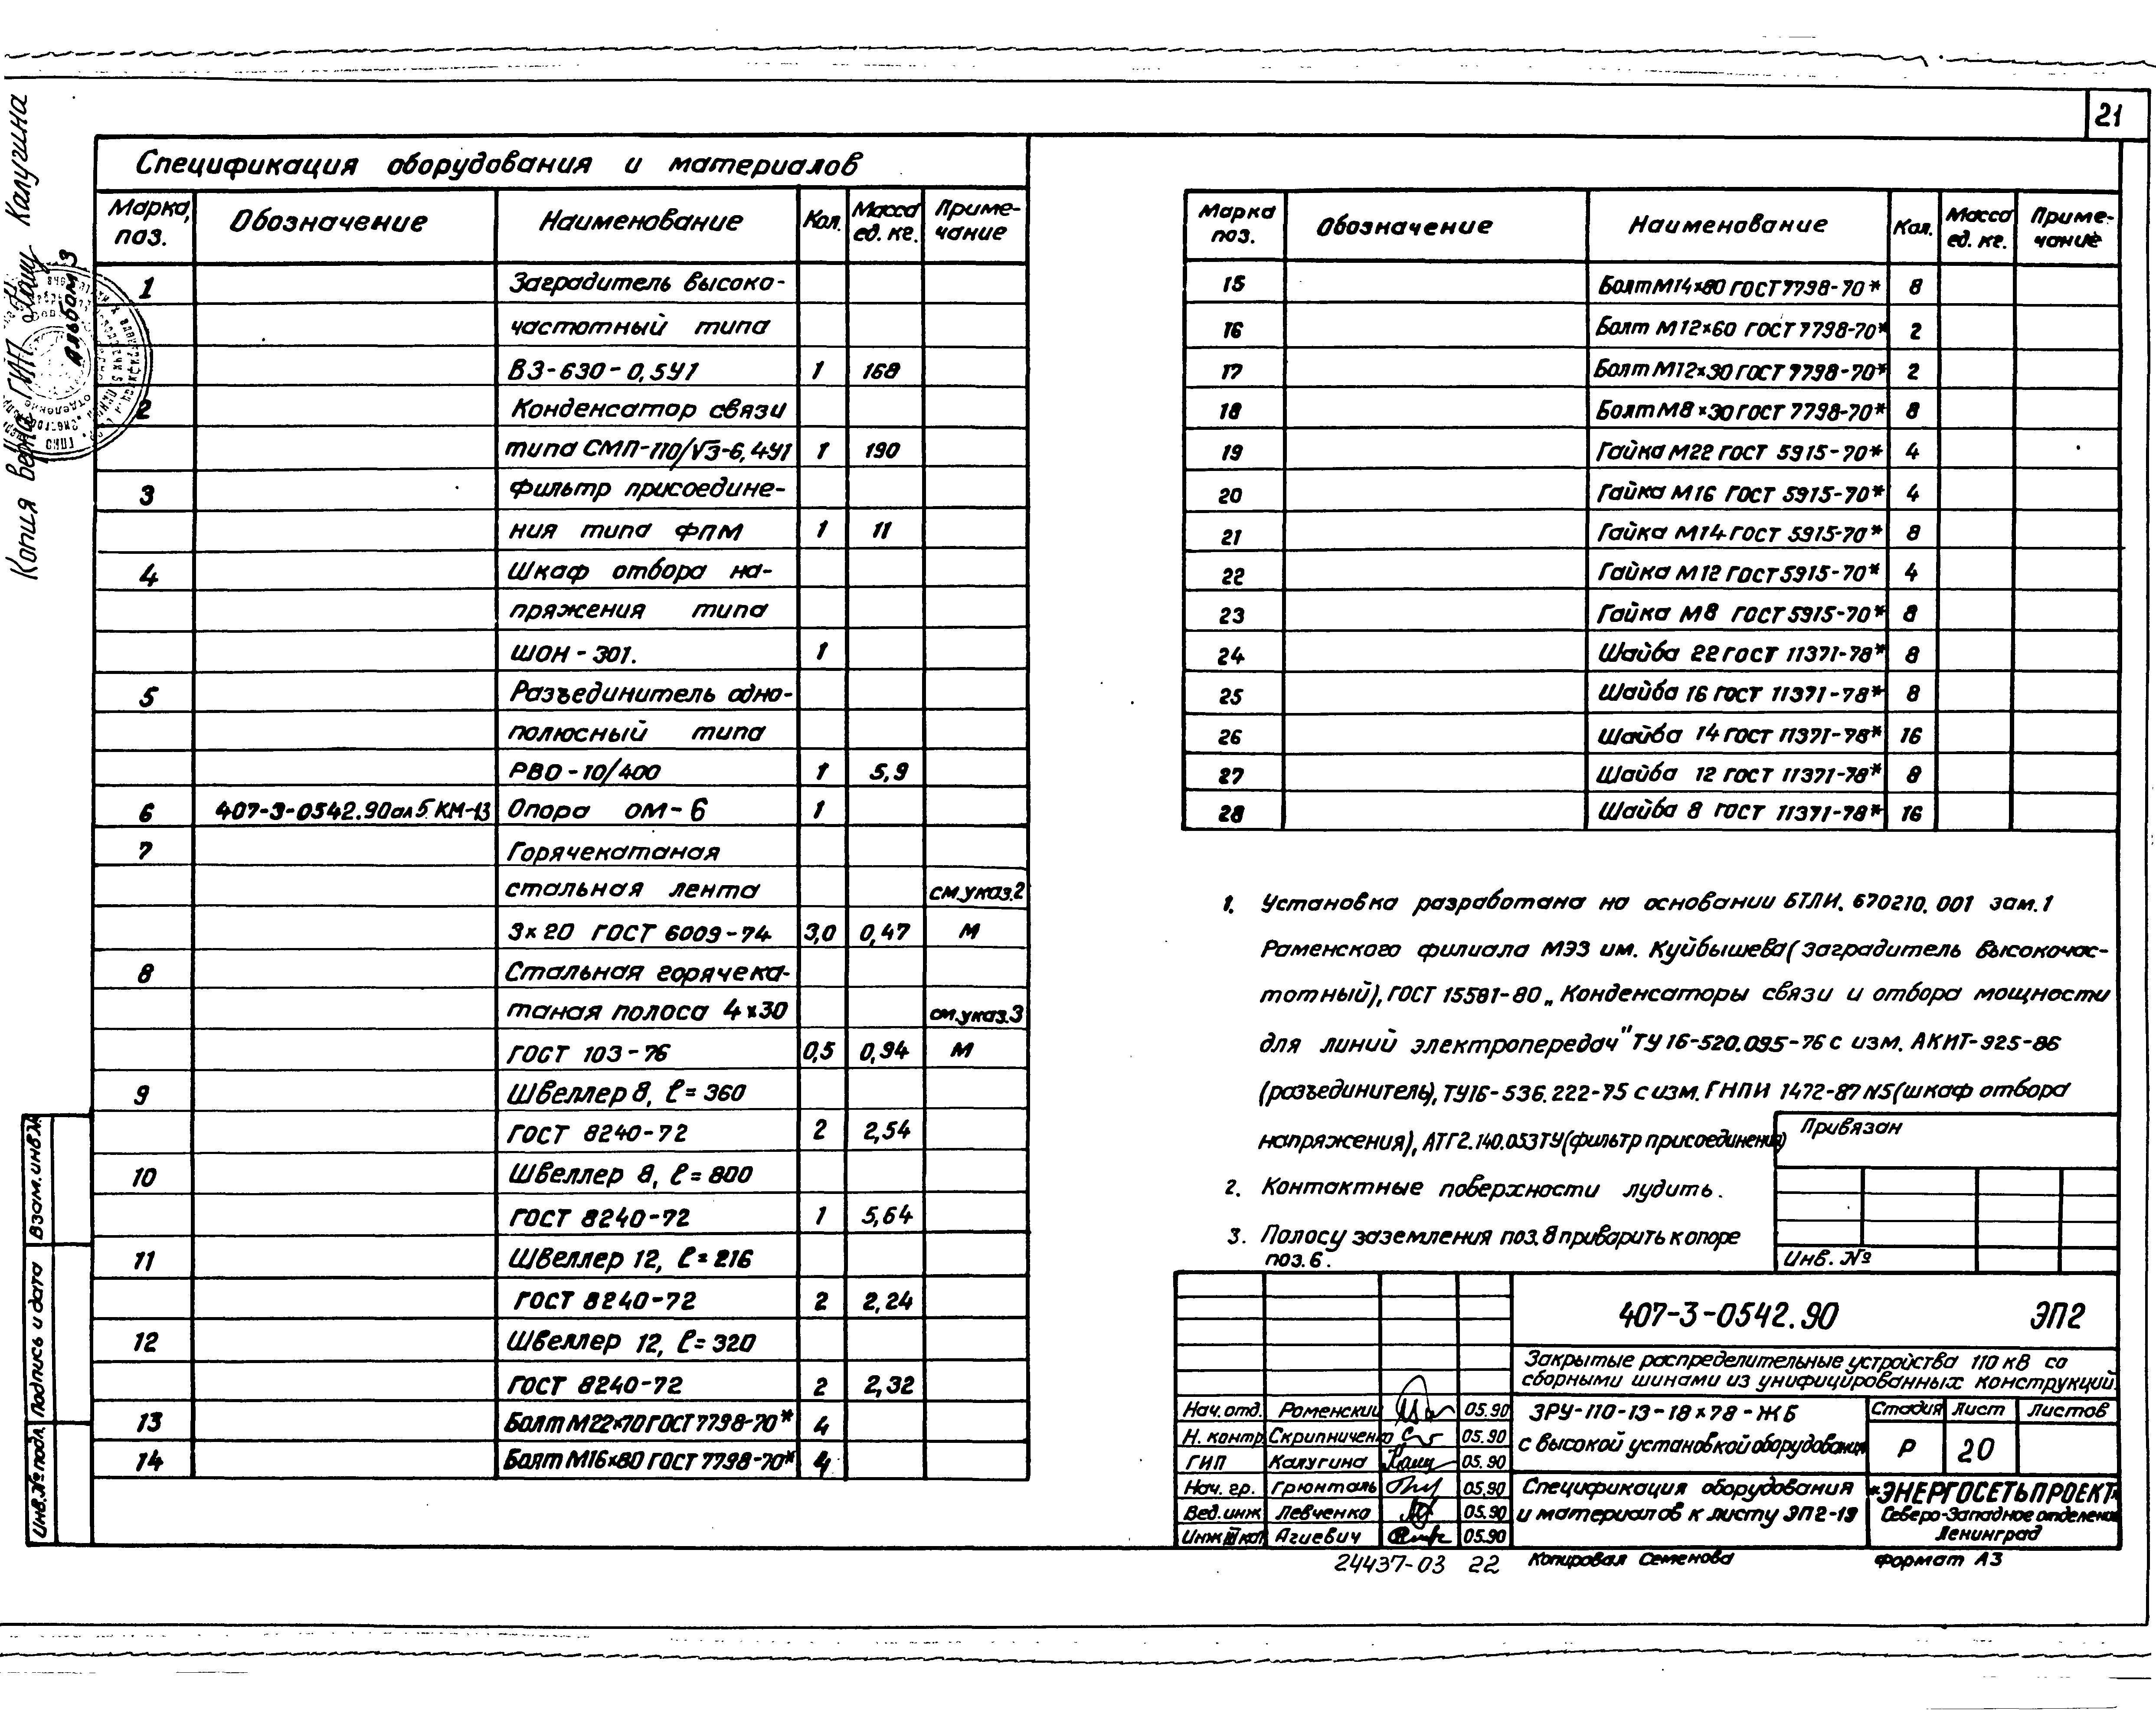 21
Копия верна ГИП Калугина
Альбом 3
Спецификация оборудования и материалов
Марка, поз. Обозначение Наименование Кол. Масса ед. кг. Приме-чание
1 Заградитель высоко-
частотный типа
ВЗ-630-0,5У1 1 168
2 Конденсатор связи
типа СМП-110/√3-6,4У1 1 190
3 Фильтр присоедине-
ния типа ФПМ 1 11
4 Шкаф отбора на-
пряжения типа
ШОН-301. 1
5 Разъединитель одно-
полюсный типа
РВО-10/400 1 5,9
6 407-3-0542.90 ал 5 КМ-13 Опора ОМ-6 1
7 Горячекатаная
стальная лента см.указ.2
3×20 ГОСТ 6009-74 3,0 0,47 М
8 Стальная горячека-
таная полоса 4×30 см.указ.3
ГОСТ 103-76 0,5 0,94 М
9 Швеллер 8, ℓ=360
ГОСТ 8240-72 2 2,54
10 Швеллер 8, ℓ=800
ГОСТ 8240-72 1 5,64
11 Швеллер 12, ℓ=216
ГОСТ 8240-72 2 2,24
12 Швеллер 12, ℓ=320
ГОСТ 8240-72 2 2,32
13 Болт М22×70 ГОСТ 7798-70* 4
14 Болт М16×80 ГОСТ 7798-70* 4
Марка поз. Обозначение Наименование Кол. Масса ед. кг. Приме-чание
15 Болт М14×80 ГОСТ 7798-70* 8
16 Болт М12×60 ГОСТ 7798-70* 2
17 Болт М12×30 ГОСТ 7798-70* 2
18 Болт М8×30 ГОСТ 7798-70* 8
19 Гайка М22 ГОСТ 5915-70* 4
20 Гайка М16 ГОСТ 5915-70* 4
21 Гайка М14 ГОСТ 5915-70* 8
22 Гайка М12 ГОСТ 5915-70* 4
23 Гайка М8 ГОСТ 5915-70* 8
24 Шайба 22 ГОСТ 11371-78* 8
25 Шайба 16 ГОСТ 11371-78* 8
26 Шайба 14 ГОСТ 11371-78* 16
27 Шайба 12 ГОСТ 11371-78* 8
28 Шайба 8 ГОСТ 11371-78* 16
1. Установка разработана на основании БТЛИ. 670210. 001 зам.1
Раменского филиала МЭЗ им. Куйбышева (заградитель высокочас-
тотный), ГОСТ 15581-80 „Конденсаторы связи и отбора мощности
для линий электропередач" ТУ 16-520.095-76 с изм. АКИТ-925-86
(разъединитель), ТУ16-536.222-75 с изм. ГНПИ 1472-87 N5 (шкаф отбора
напряжения), АТГ2.140.053ТУ (фильтр присоединения)
2. Контактные поверхности лудить.
3. Полосу заземления поз.8 приварить к опоре
поз.6.
Привязан
Инв. №
407-3-0542.90 ЭП2
Закрытые распределительные устройства 110 кВ со
сборными шинами из унифицированных конструкций.
Нач.отд. Роменский 05.90
Н. контр. Скрипниченко 05.90
ГИП Калугина 05.90
Нач. гр. Грюнталь 05.90
Вед.инж Левченко 05.90
Инж. II кат Агиевич 05.90
ЗРУ-110-13-18×78-ЖБ
с высокой установкой оборудования
Стадия Лист Листов
Р 20
Спецификация оборудования
и материалов к листу ЭП2-19
"ЭНЕРГОСЕТЬПРОЕКТ"
Северо-Западное отделение
Ленинград
24437-03 22 Копировал Семенова Формат А3
Взам.инв.№
Подпись и дата
Инв.№ подл.